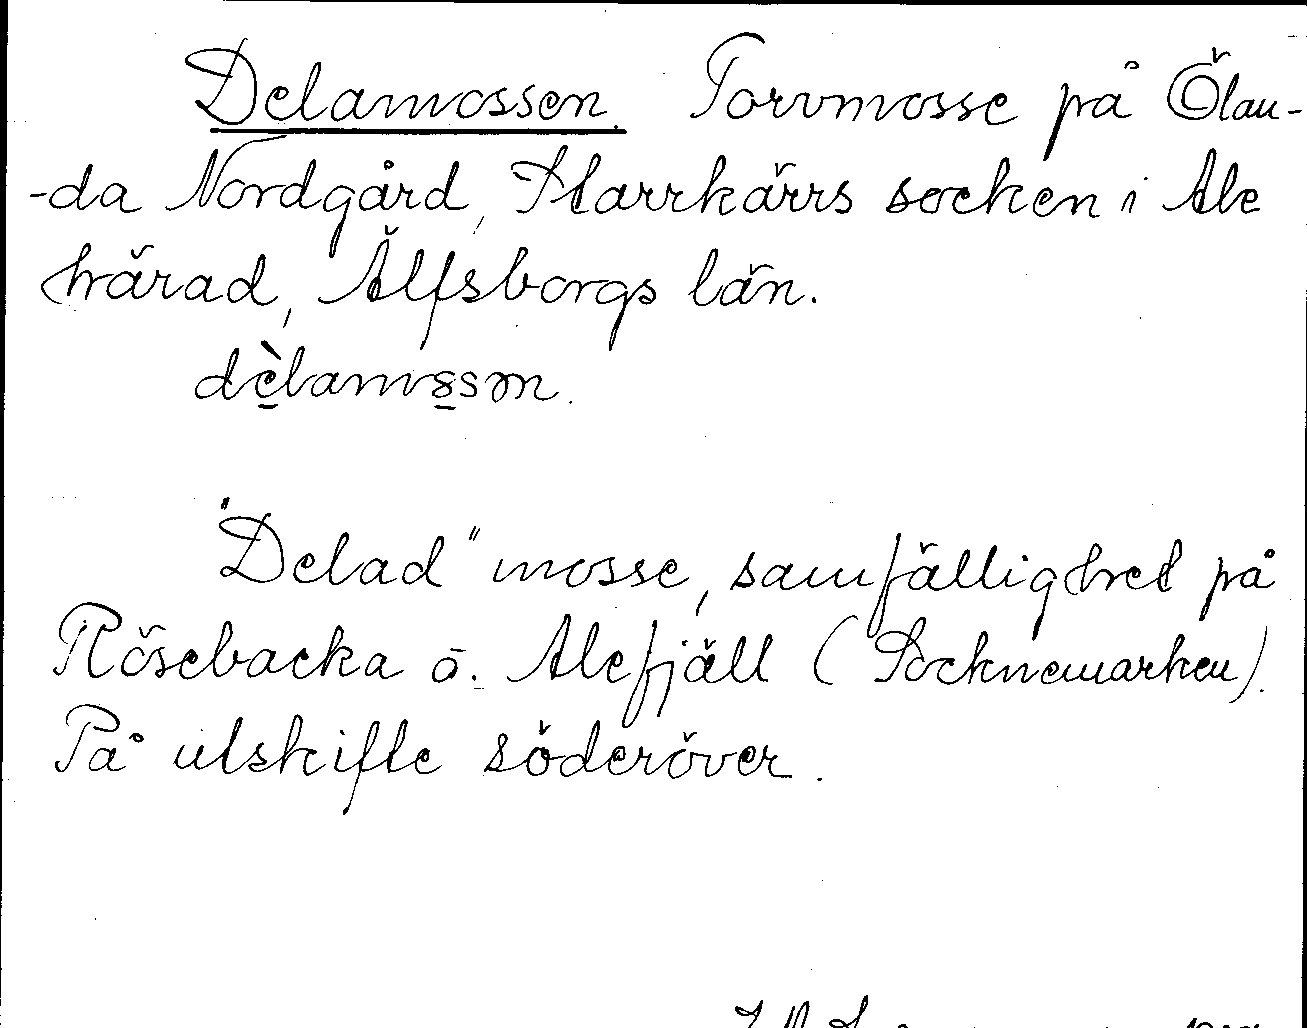 Delamossen. Torvmosse på Ölan-
-da Nordgård, Starrkärrs socken i Ale
härad, Älfsborgs län.
dèlamossən.
"Delad" mosse, samfällighet på
Rösebacka ö. Alefjäll (Socknemarken).
På utskifte söderöver.